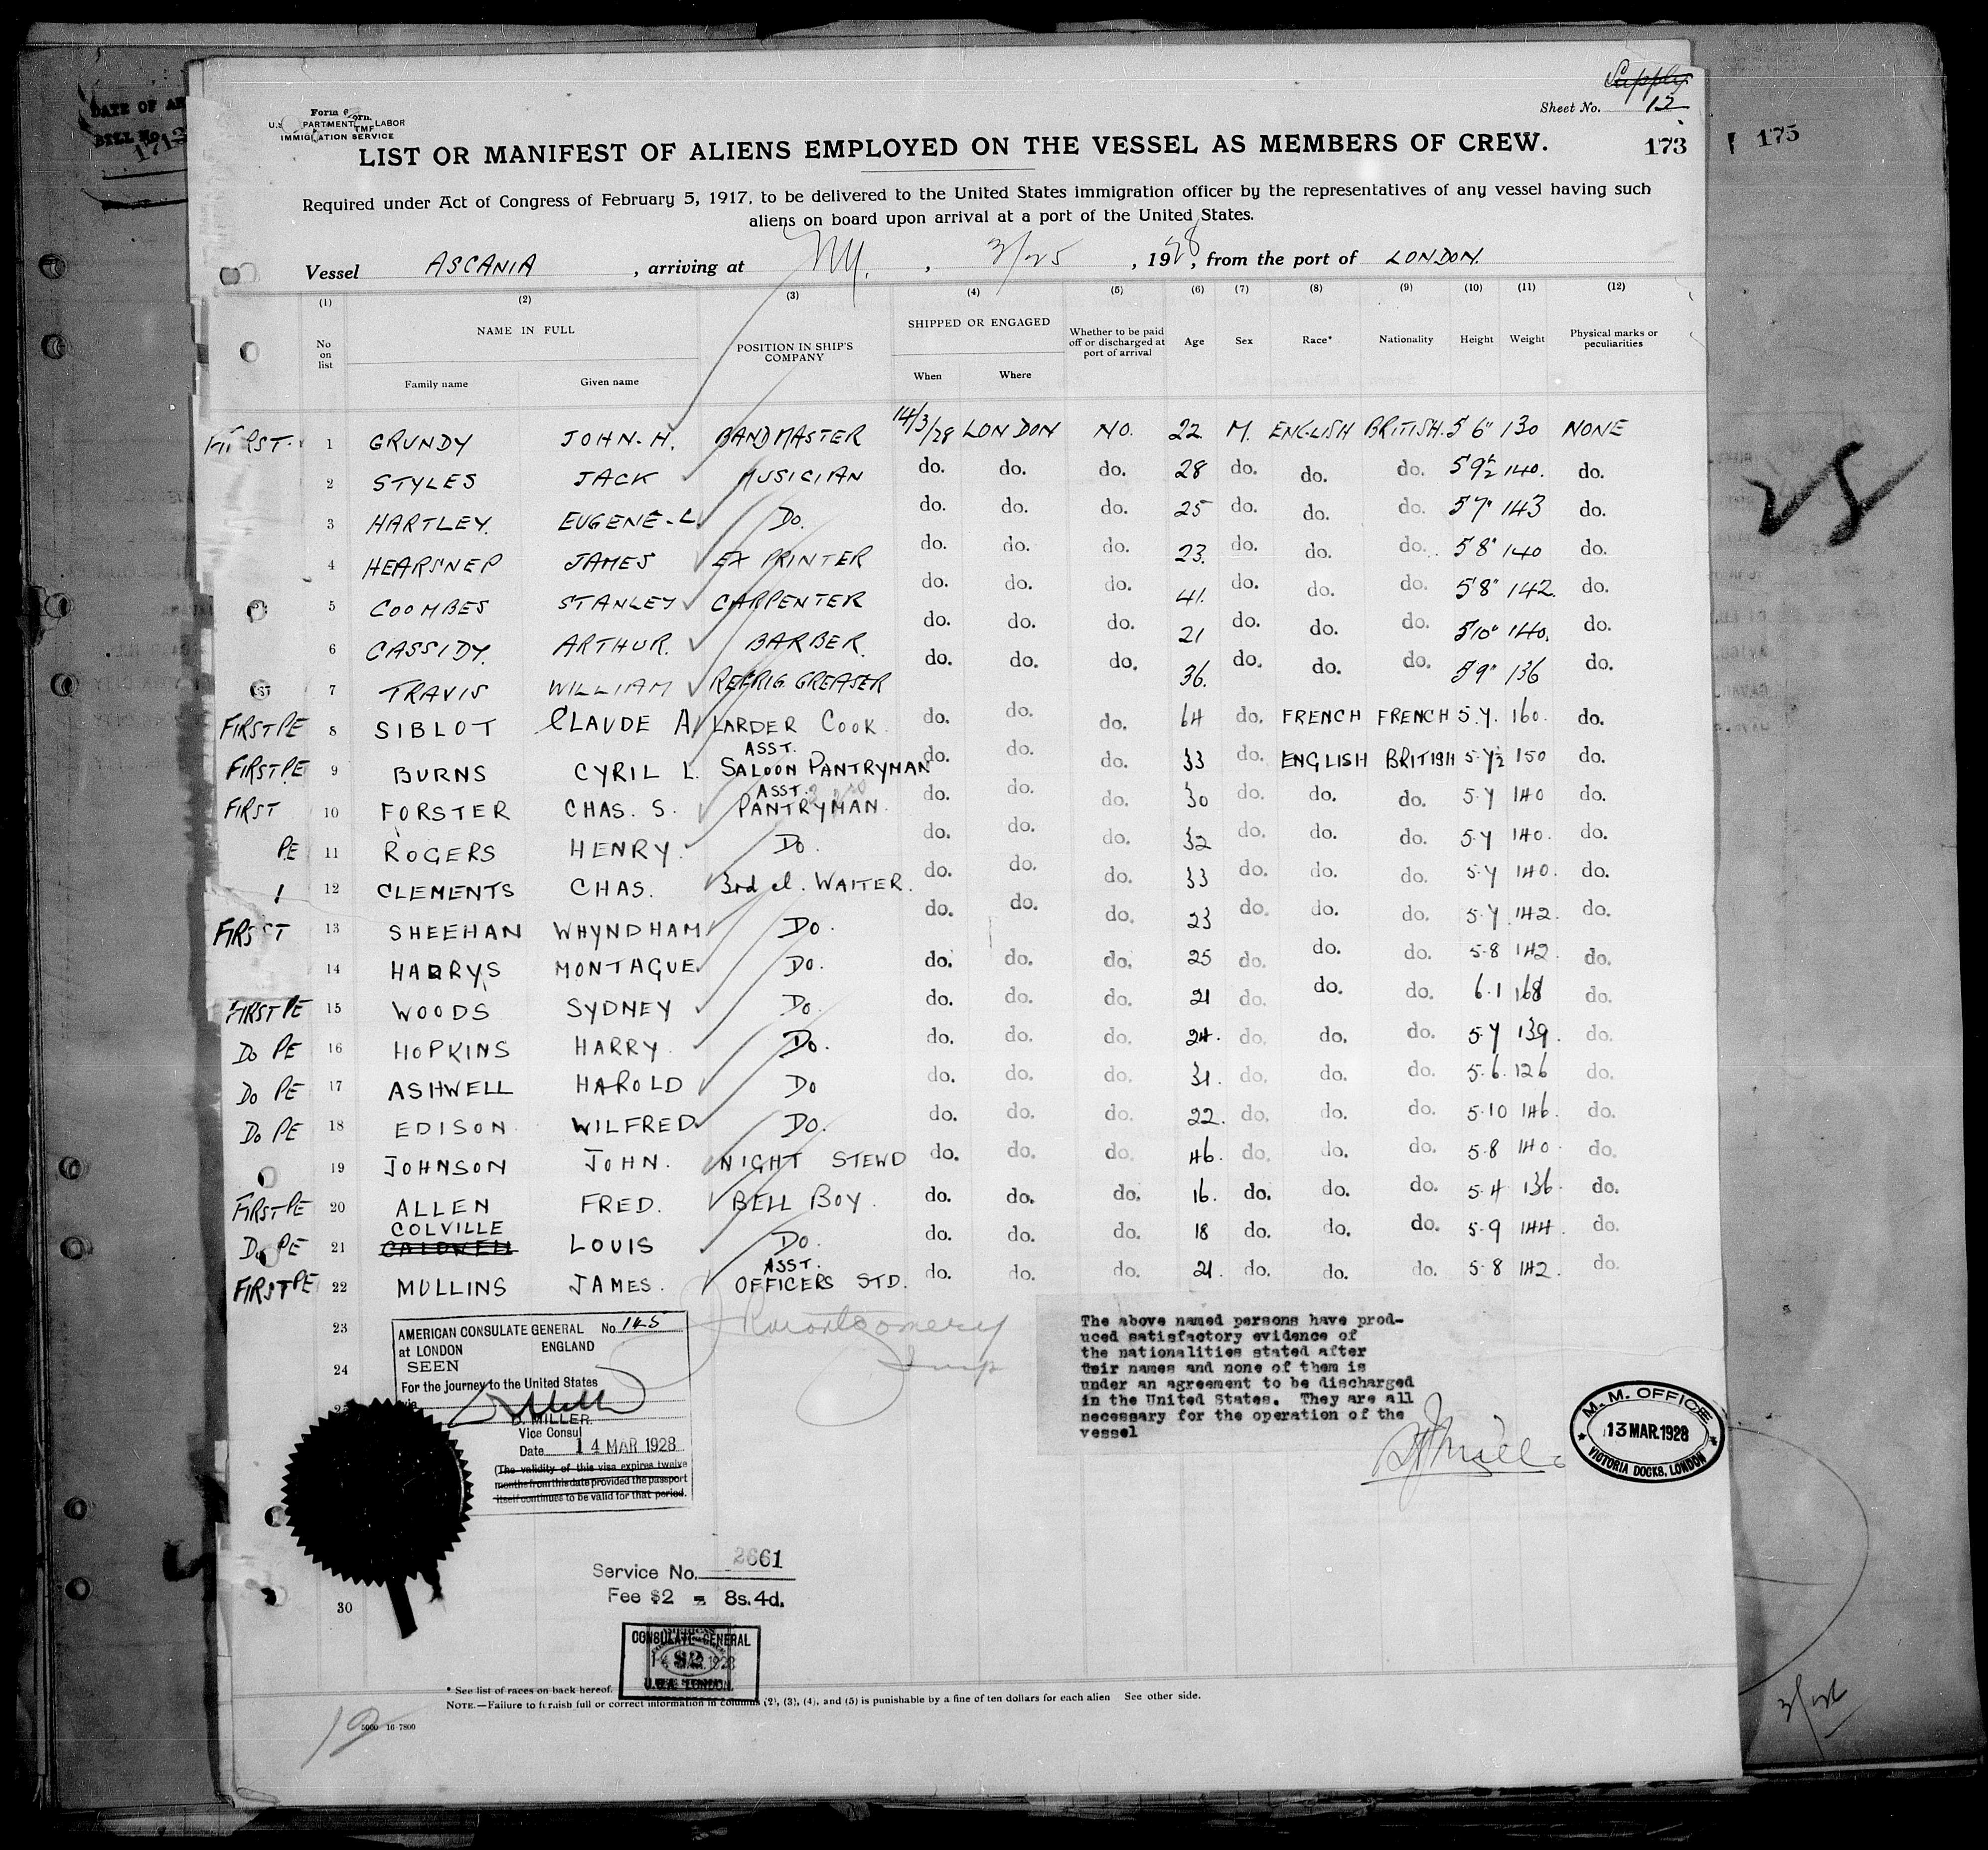 Supply
Sheet No. 12
173
175
DATE OF AR
BILL No.
1713
U.S. DEPARTMENT LABOR
IMMIGRATION SERVICE
LIST OR MANIFEST OF ALIENS EMPLOYED ON THE VESSEL AS MEMBERS OF CREW.
Required under Act of Congress of February 5, 1917, to be delivered to the United States immigration officer by the representatives of any vessel having such
aliens on board upon arrival at a port of the United States.
Vessel ASCANIA, arriving at N.Y., 3/25, 1928, from the port of LONDON.
(1) (2) (3) (4) (5) (6) (7) (8) (9) (10) (11) (12)
No on list NAME IN FULL POSITION IN SHIP'S COMPANY SHIPPED OR ENGAGED Whether to be paid off or discharged at port of arrival Age Sex Race* Nationality Height Weight Physical marks or peculiarities
Family name Given name When Where
FIRST. 1 GRUNDY JOHN. H. BANDMASTER 14/3/28 LONDON NO. 22 M. ENGLISH BRITISH. 5'6" 130 NONE
2 STYLES JACK MUSICIAN do. do. do. 28 do. do. do. 5'9½ 140. do.
3 HARTLEY. EUGENE-L. Do. do. do. do. 25 do. do. do. 5'7" 143 do.
4 HEARSNEP JAMES EX PRINTER do. do. do. 23. do. do. do. 5'8" 140 do.
5 COOMBES STANLEY CARPENTER do. do. do. 41. do. do. do. 5'8" 142. do.
6 CASSIDY. ARTHUR. BARBER. do. do. do. 21 do. do. do. 5'10" 140. do.
7 TRAVIS WILLIAM REFRIG. GREASER do. do. do. 36. do. do. do. 5'9" 136 do.
FIRST PE 8 SIBLOT CLAUDE A. LARDER COOK do. do. do. 64 do. FRENCH FRENCH 5.7. 160. do.
FIRST PE 9 BURNS CYRIL L. ASST. SALOON PANTRYMAN do. do. do. 33 do. ENGLISH BRITISH 5.7½ 150 do.
FIRST 10 FORSTER CHAS. S. ASST. PANTRYMAN. do. do. do. 30 do. do. do. 5.7 140 do.
PE 11 ROGERS HENRY. Do. do. do. do. 32 do. do. do. 5.7 140. do.
1 12 CLEMENTS CHAS. 3rd cl. WAITER. do. do. do. 33 do. do. do. 5.7 140. do.
FIRST 13 SHEEHAN WHYNDHAM Do. do. do. do. 23 do. do. do. 5.7. 142. do.
14 HARRYS MONTAGUE. Do. do. do. do. 25 do. do. do. 5.8 142. do.
FIRST PE 15 WOODS SYDNEY Do. do. do. do. 21 do. do. do. 6.1 168 do.
Do PE 16 HOPKINS HARRY. Do. do. do. do. 24. do. do. do. 5.7 139. do.
Do PE 17 ASHWELL HAROLD Do do. do. do. 31. do. do. do. 5.6. 126 do.
Do PE 18 EDISON WILFRED. Do. do. do. do. 22. do. do. do. 5.10 146. do.
19 JOHNSON JOHN. NIGHT STEWD do. do. do. 46. do. do. do. 5.8 140. do.
FIRST PE 20 ALLEN FRED. BELL BOY. do. do. do. 16. do. do. do. 5.4 136. do.
COLVILLE
Do PE 21 CALDWELL LOUIS Do. do. do. do. 18 do. do. do. 5.9 144. do.
FIRST PE 22 MULLINS JAMES. ASST. OFFICERS STD. do. do. do. 21. do. do. do. 5.8 142. do.
23
24
30
AMERICAN CONSULATE GENERAL No. 145
at LONDON ENGLAND
SEEN
For the journey to the United States
via
D. MILLER.
Vice Consul
Date 14 MAR 1928
(The validity of this visa expires twelve
months from this date provided the passport
itself continues to be valid for that period.
Montgomery
Insp
The above named persons have prod-
uced satisfactory evidence of
the nationalities stated after
their names and none of them is
under an agreement to be discharged
in the United States. They are all
necessary for the operation of the
vessel
M. M. OFFICE
13 MAR. 1928
VICTORIA DOCKS, LONDON
Service No. 2661
Fee $2 = 8s. 4d.
CONSULATE GENERAL
$2
14 MAR 1928
U.S.A. LONDON.
* See list of races on back hereof.
NOTE.—Failure to furnish full or correct information in columns (2), (3), (4), and (5) is punishable by a fine of ten dollars for each alien See other side.
5000 16-7800
19
28